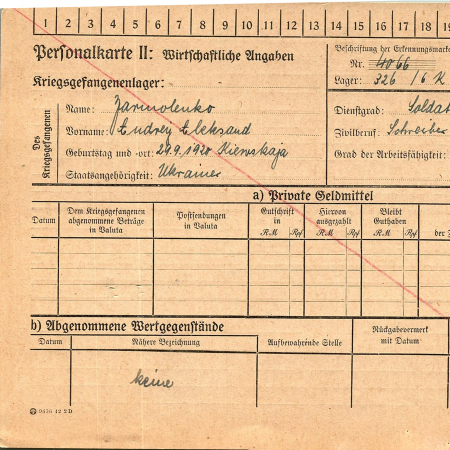 1 2 3 4 5 6 7 8 9 10 11 12 13 14 15 16 17 18 19
Personalkarte II: Wirtschaftliche Angaben
Beschriftung der Erkennungsmarke
Nr. 4066
Kriegsgefangenenlager:
Lager: 326 / 6 K
Des Kriegsgefangenen
Name: Jarmolenko
Dienstgrad: Soldat
Vorname: Endrey Eleksand
Zivilberuf: Schreiber
Geburtstag und -ort: 29.9.1920 Kiewskaja
Grad der Arbeitsfähigkeit:
Staatsangehörigkeit: Ukrainer
a) Private Geldmittel
Datum
Dem Kriegsgefangenen abgenommene Beträge in Valuta
Postsendungen in Valuta
Gutschrift in
RM Rpf
Hiervon ausgezahlt
RM Rpf
Bleibt Guthaben
RM Rpf
der
b) Abgenommene Wertgegenstände
Datum
Nähere Bezeichnung
Aufbewahrende Stelle
Rückgabevermerk mit Datum
keine